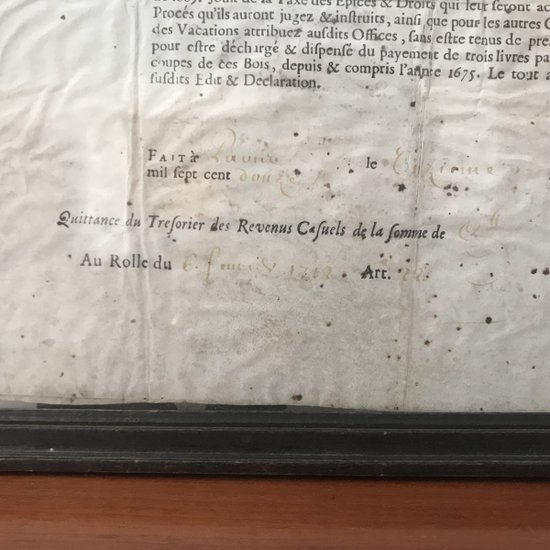 de 1669. Joüir de la Taxe des Epices & Droits qui leur seront ac
Procés qu'ils auront jugez & instruits, ainsi que pour les autres C
des Vacations attribuez ausdits Offices, sans estre tenus de pre
pour estre déchargé & dispensé du payement de trois livres pa
coupes de ces Bois, depuis & compris l'année 1675. Le tout a
susdits Edit & Declaration.
FAIT à Paris le Onzieme
mil sept cent douze
Quittance du Tresorier des Revenus Casuels de la somme de
Au Rolle du 6 1712. Art. 22.